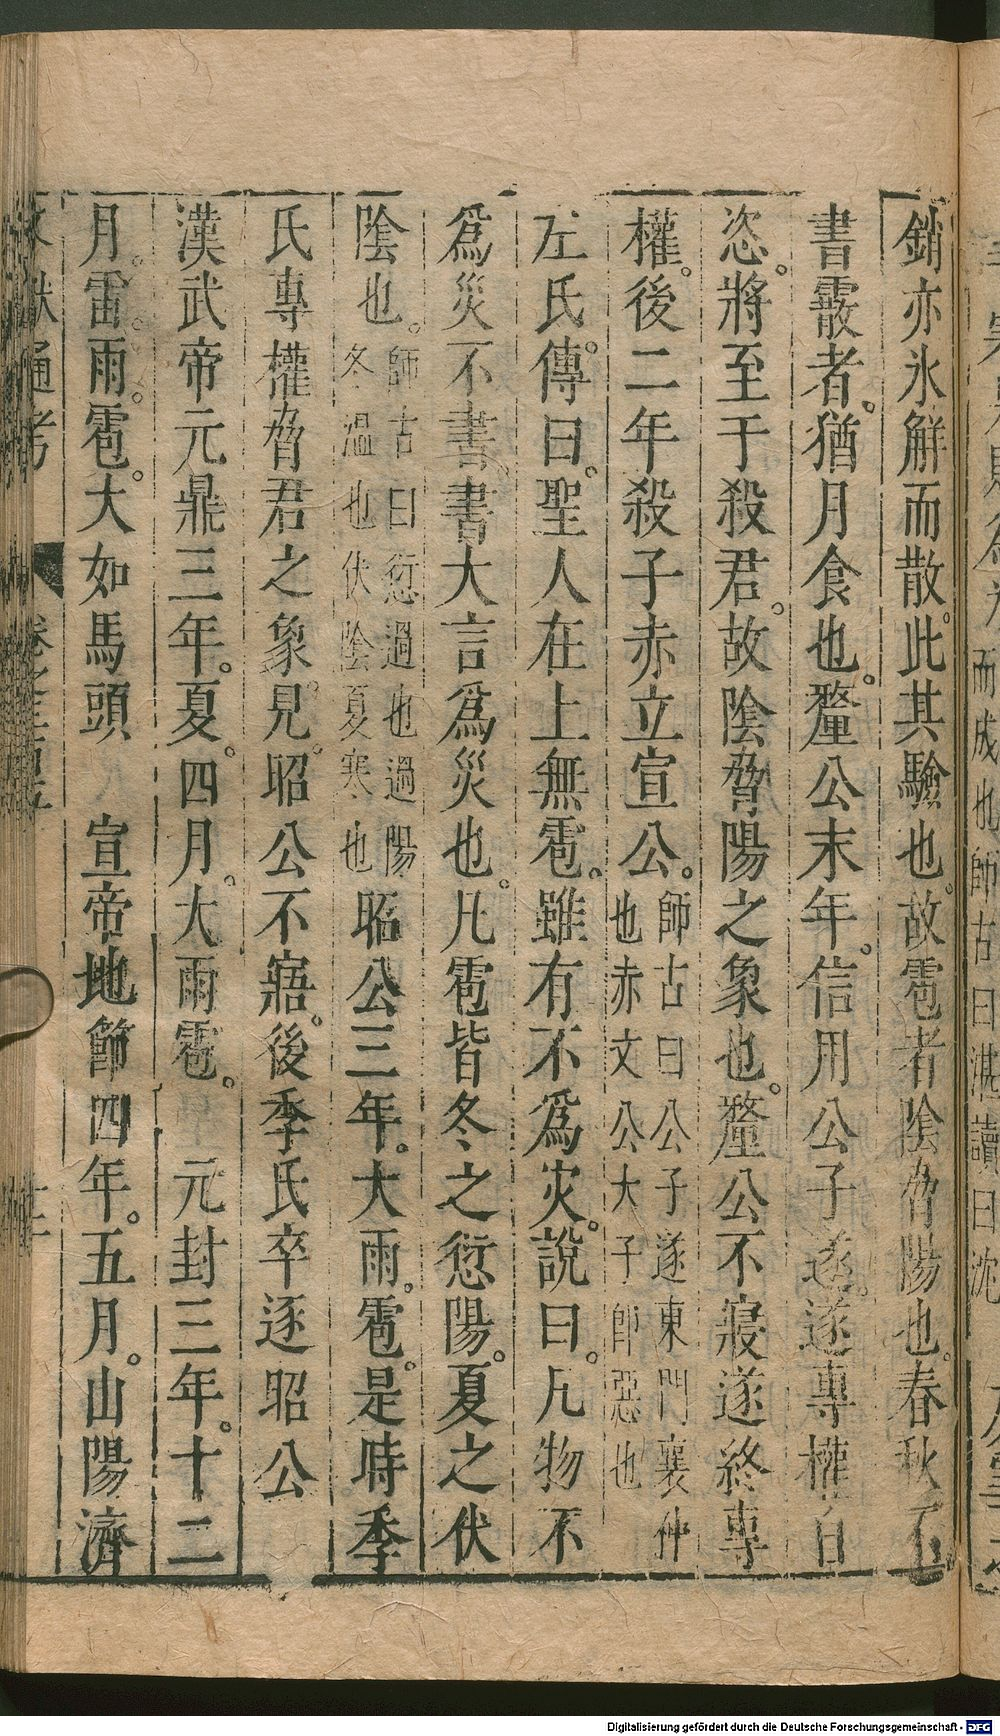 銷亦氷解而散。此其驗也。故雹者陰脅陽也。春秋不
書霰者。猶月食也。釐公末年。信用公子遂。遂專權自
恣。將至于殺君。故陰脅陽之象也。釐公不寤遂終專
權。後二年殺子赤立宣公。師古曰公子遂東門襄仲
也赤文公大子即惡也
左氏傳曰。聖人在上無雹。雖有不爲灾。說曰。凡物不
爲災不書。書大言爲災也。凡雹皆冬之愆陽。夏之伏
陰也。師古曰愆過也過陽
冬溫也伏陰夏寒也昭公三年。大雨。雹。是時季
氏專權脅君之象見。昭公不寤。後季氏卒逐昭公
漢武帝元鼎三年。夏。四月。大雨雹。 元封三年。十二
月。雷。雨。雹。大如馬頭 宣帝地節四年。五月。山陽濟
文獻通考
而成也師古曰湛讀曰沈
Digitalisierung gefördert durch die Deutsche Forschungsgemeinschaft - DFG